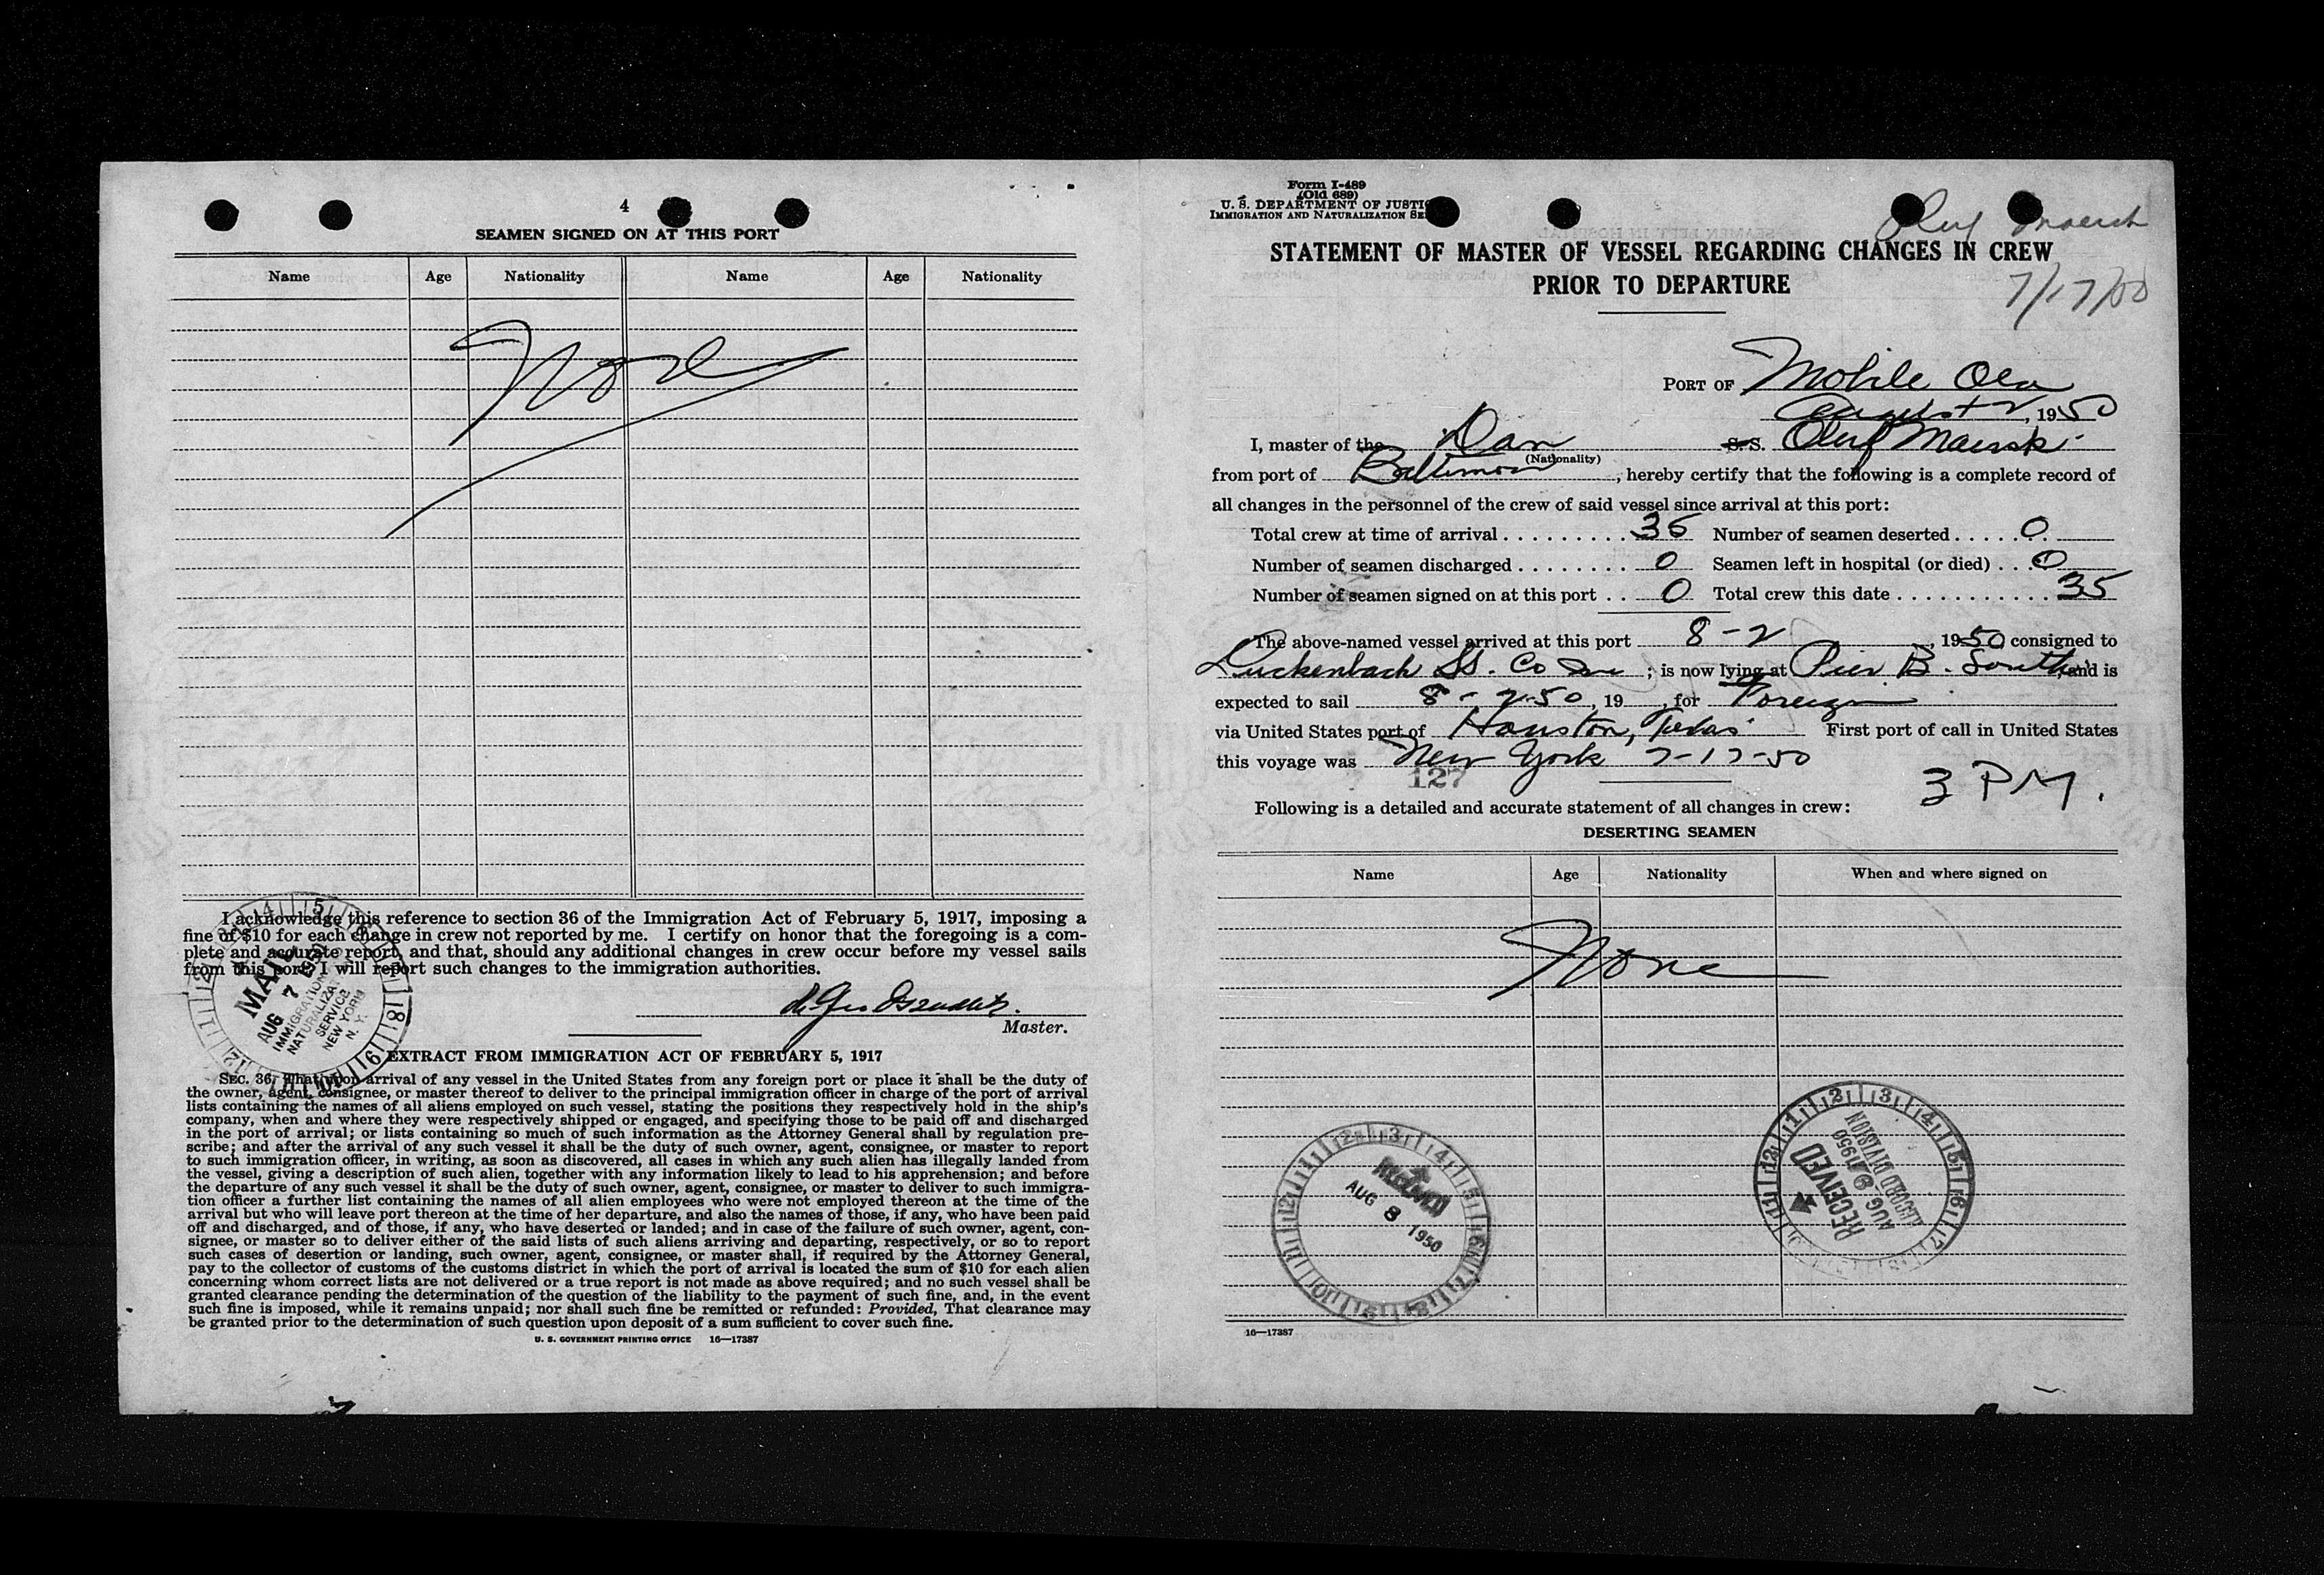 4
SEAMEN SIGNED ON AT THIS PORT
Name Age Nationality Name Age Nationality
None
I acknowledge this reference to section 36 of the Immigration Act of February 5, 1917, imposing a
fine of $10 for each change in crew not reported by me. I certify on honor that the foregoing is a com-
plete and accurate report, and that, should any additional changes in crew occur before my vessel sails
from this port I will report such changes to the immigration authorities.
Master.
MAIL
AUG 7 1950
IMMIGRATION
NATURALIZA
SERVICE
NEW YORK
N. Y.
EXTRACT FROM IMMIGRATION ACT OF FEBRUARY 5, 1917
SEC. 36. That upon arrival of any vessel in the United States from any foreign port or place it shall be the duty of
the owner, agent, consignee, or master thereof to deliver to the principal immigration officer in charge of the port of arrival
lists containing the names of all aliens employed on such vessel, stating the positions they respectively hold in the ship's
company, when and where they were respectively shipped or engaged, and specifying those to be paid off and discharged
in the port of arrival; or lists containing so much of such information as the Attorney General shall by regulation pre-
scribe; and after the arrival of any such vessel it shall be the duty of such owner, agent, consignee, or master to report
to such immigration officer, in writing, as soon as discovered, all cases in which any such alien has illegally landed from
the vessel, giving a description of such alien, together with any information likely to lead to his apprehension; and before
the departure of any such vessel it shall be the duty of such owner, agent, consignee, or master to deliver to such immigra-
tion officer a further list containing the names of all alien employees who were not employed thereon at the time of the
arrival but who will leave port thereon at the time of her departure, and also the names of those, if any, who have been paid
off and discharged, and of those, if any, who have deserted or landed; and in case of the failure of such owner, agent, con-
signee, or master so to deliver either of the said lists of such aliens arriving and departing, respectively, or so to report
such cases of desertion or landing, such owner, agent, consignee, or master shall, if required by the Attorney General,
pay to the collector of customs of the customs district in which the port of arrival is located the sum of $10 for each alien
concerning whom correct lists are not delivered or a true report is not made as above required; and no such vessel shall be
granted clearance pending the determination of the question of the liability to the payment of such fine, and, in the event
such fine is imposed, while it remains unpaid; nor shall such fine be remitted or refunded: Provided, That clearance may
be granted prior to the determination of such question upon deposit of a sum sufficient to cover such fine.
U. S. GOVERNMENT PRINTING OFFICE 16—17387
Form I-489
(Old 689)
U. S. DEPARTMENT OF JUSTI
IMMIGRATION AND NATURALIZATION SE
Oluf Maersk
7/17/50
STATEMENT OF MASTER OF VESSEL REGARDING CHANGES IN CREW
PRIOR TO DEPARTURE
PORT OF Mobile Ala
August 2, 1950
I, master of the Dan S. S. Oluf Maersk
(Nationality)
from port of Baltimore, hereby certify that the following is a complete record of
all changes in the personnel of the crew of said vessel since arrival at this port:
Total crew at time of arrival 35 Number of seamen deserted 0
Number of seamen discharged 0 Seamen left in hospital (or died) 0
Number of seamen signed on at this port 0 Total crew this date 35
The above-named vessel arrived at this port 8-2, 1950 consigned to
Luckenbach SS. Co Inc; is now lying at Pier B. South, and is
expected to sail 8-2-50, 19 , for Foreign
via United States port of Houston, Texas First port of call in United States
this voyage was New York 7-17-50
127
3 PM.
Following is a detailed and accurate statement of all changes in crew:
DESERTING SEAMEN
Name Age Nationality When and where signed on
None
RECEIVED
AUG 8 1950
RECEIVED
AUG 9 1950
RECORD DIVISION
16—17387